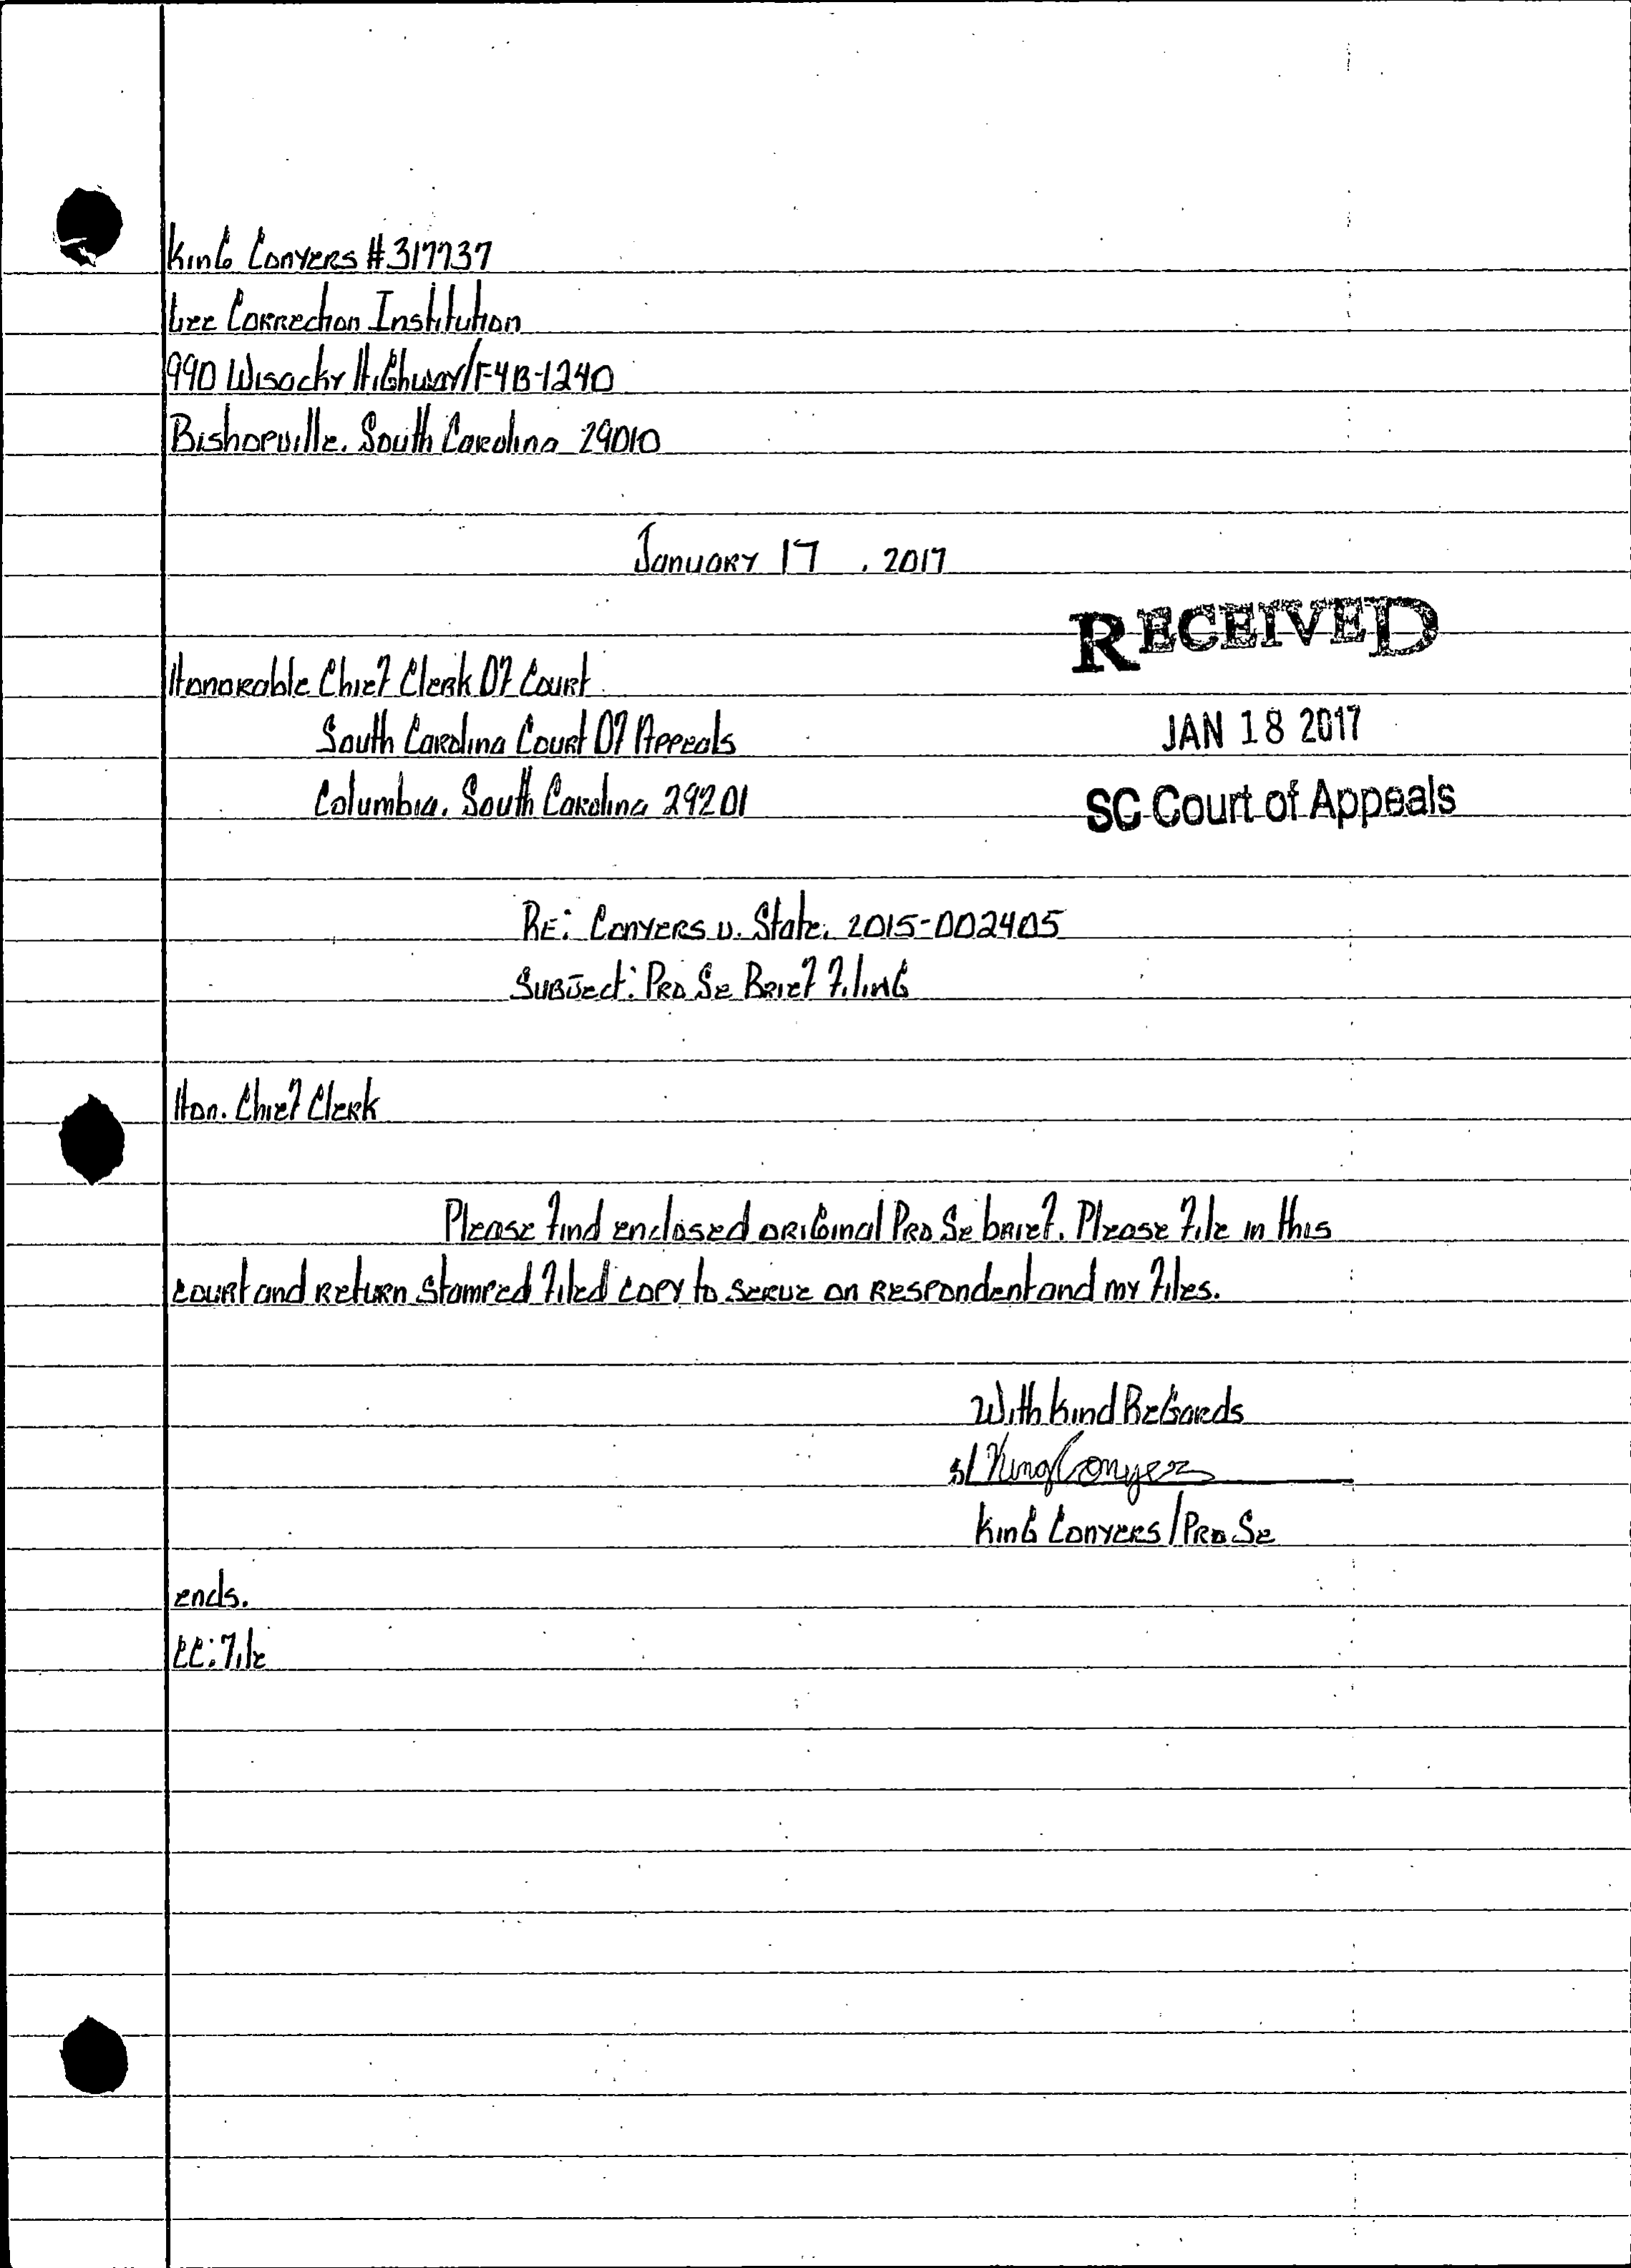 King Conyers #317737
Lee Correction Institution
990 Wisacky Highway/F4B-1240
Bishopville, South Carolina 29010
January 17, 2017
RECEIVED
Honorable Chief Clerk Of Court
South Carolina Court Of Appeals
JAN 18 2017
Columbia, South Carolina 29201
SC Court of Appeals
RE: Conyers v. State, 2015-002405
Subject: Pro Se Brief Filing
Hon. Chief Clerk
Please find enclosed original Pro Se brief. Please file in this
court and return stamped filed copy to serve on Respondent and my files.
With Kind Regards
s/ King Conyers
King Conyers/Pro Se
encls.
CC: File